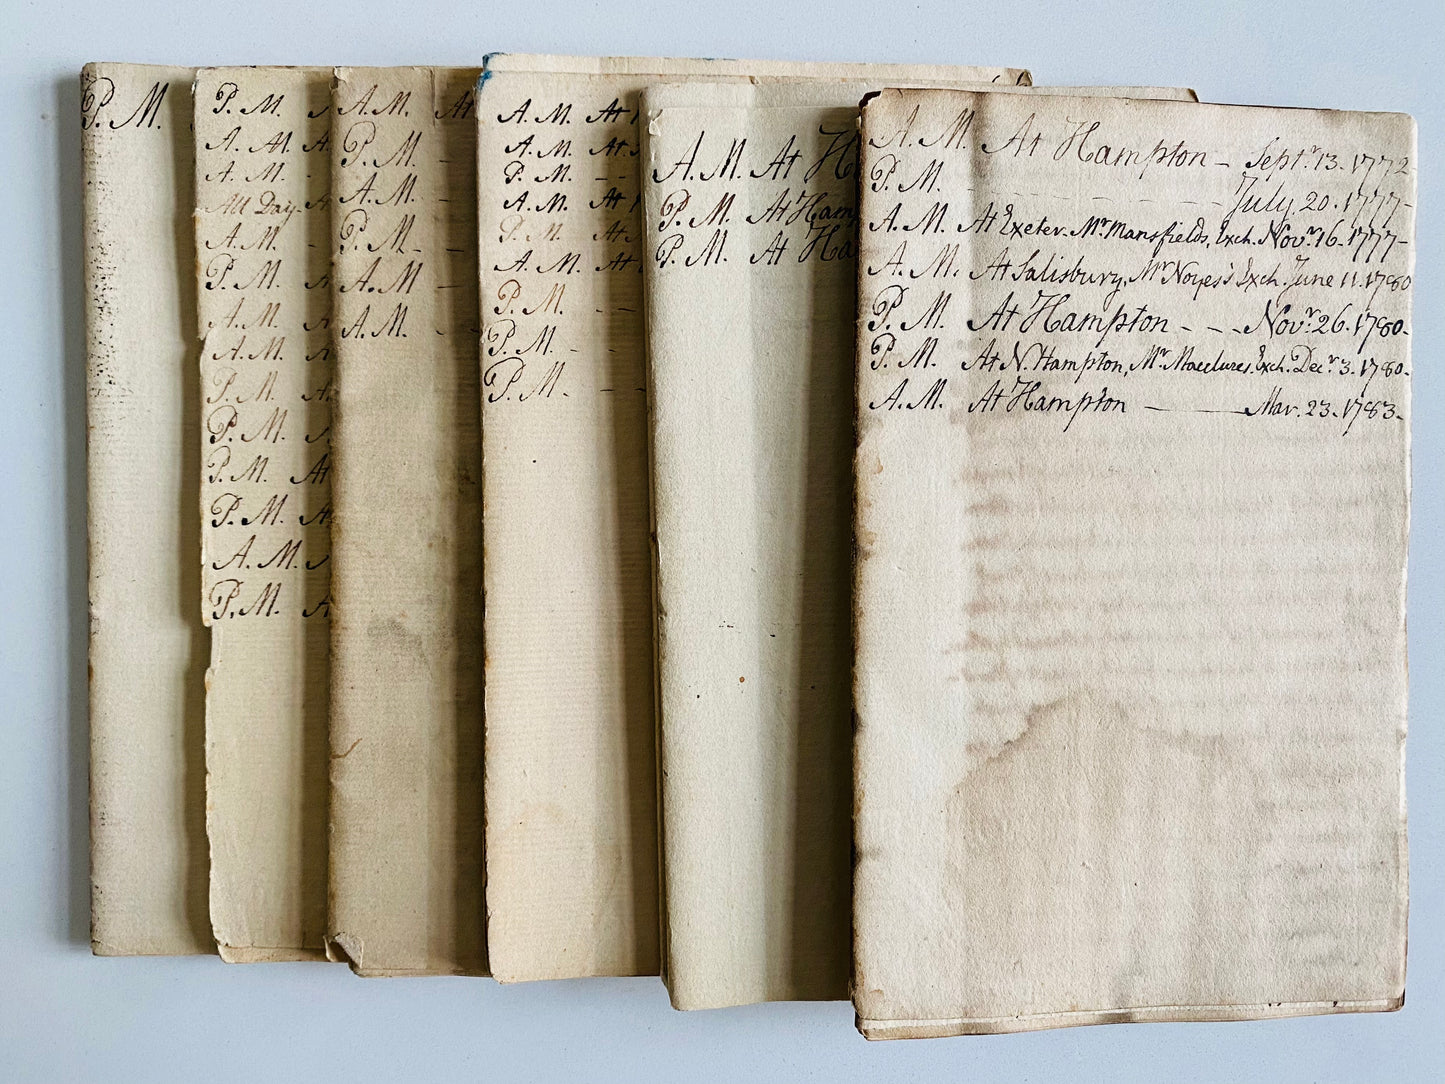 P. M.
P. M.
A. M. A
A. M.
All Day.
A. M.
P. M.
A. M.
A. M.
P. M.
P. M.
P. M. At
P. M. A
A. M.
P. M. A
A. M. At
P. M. -
A. M. -
P. M. - -
A. M. -
A. M. - -
A. M. At
A. M. At
P. M. - -
A. M. At
P. M. At
A. M. At
P. M. - -
P. M. - -
P. M. - -
A. M. At H
P. M. At Ham
P. M. At Ha
A. M. At Hampton - Septr. 13. 1772-
P. M. - - - - - - July. 20. 1777-
A. M. At Exeter. Mr. Mansfields, Exch. Novr. 16. 1777-
A. M. At Salisbury, Mr Noyes's Exch. June 11. 1780
P. M. At Hampton - - - Novr. 26. 1780-
P. M. At N. Hampton, Mr. Macclures. Exch. Decr. 3. 1780-
A. M. At Hampton — — Mar. 23. 1783-